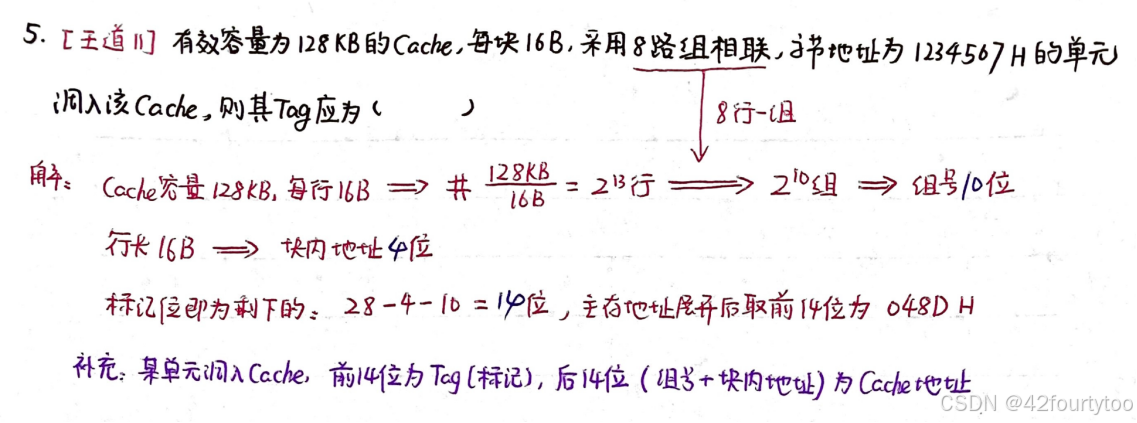 5. [王道11] 有效容量为128KB的Cache,每块16B,采用8路组相联,字节地址为1234567H的单元
调入该Cache,则其Tag应为( )
8行一组
解: Cache容量128KB,每行16B ⟹ 共 128KB/16B = 2¹³行 ⟹ 2¹⁰组 ⟹ 组号10位
行长16B ⟹ 块内地址4位
标记位即为剩下的: 28-4-10=14位,主存地址展开后取前14位为 048D H
补充: 某单元调入Cache, 前14位为Tag(标记),后14位(组号+块内地址)为Cache地址
CSDN @42fourtytoo